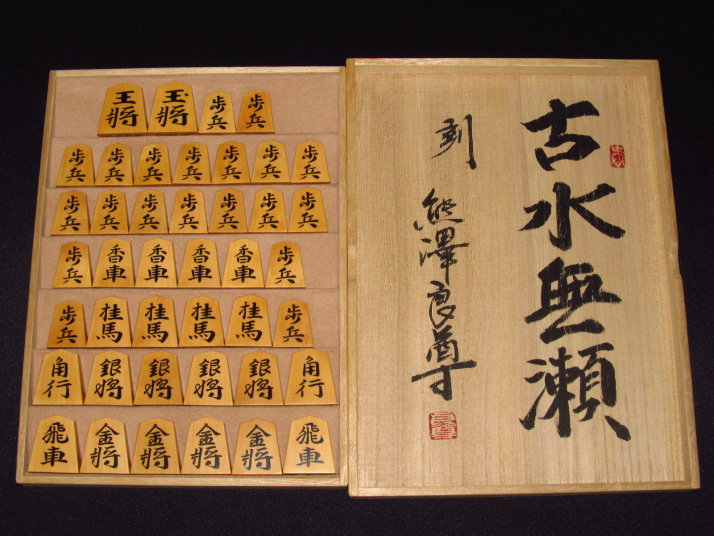 王将 玉将 歩兵 歩兵
歩兵 歩兵 歩兵 歩兵 歩兵 歩兵 歩兵
歩兵 歩兵 歩兵 歩兵 歩兵 歩兵 歩兵
歩兵 香車 香車 香車 香車 歩兵
歩兵 桂馬 桂馬 桂馬 桂馬 歩兵
角行 銀将 銀将 銀将 銀将 角行
飛車 金将 金将 金将 金将 飛車
古水無瀬
刻 熊澤良尊